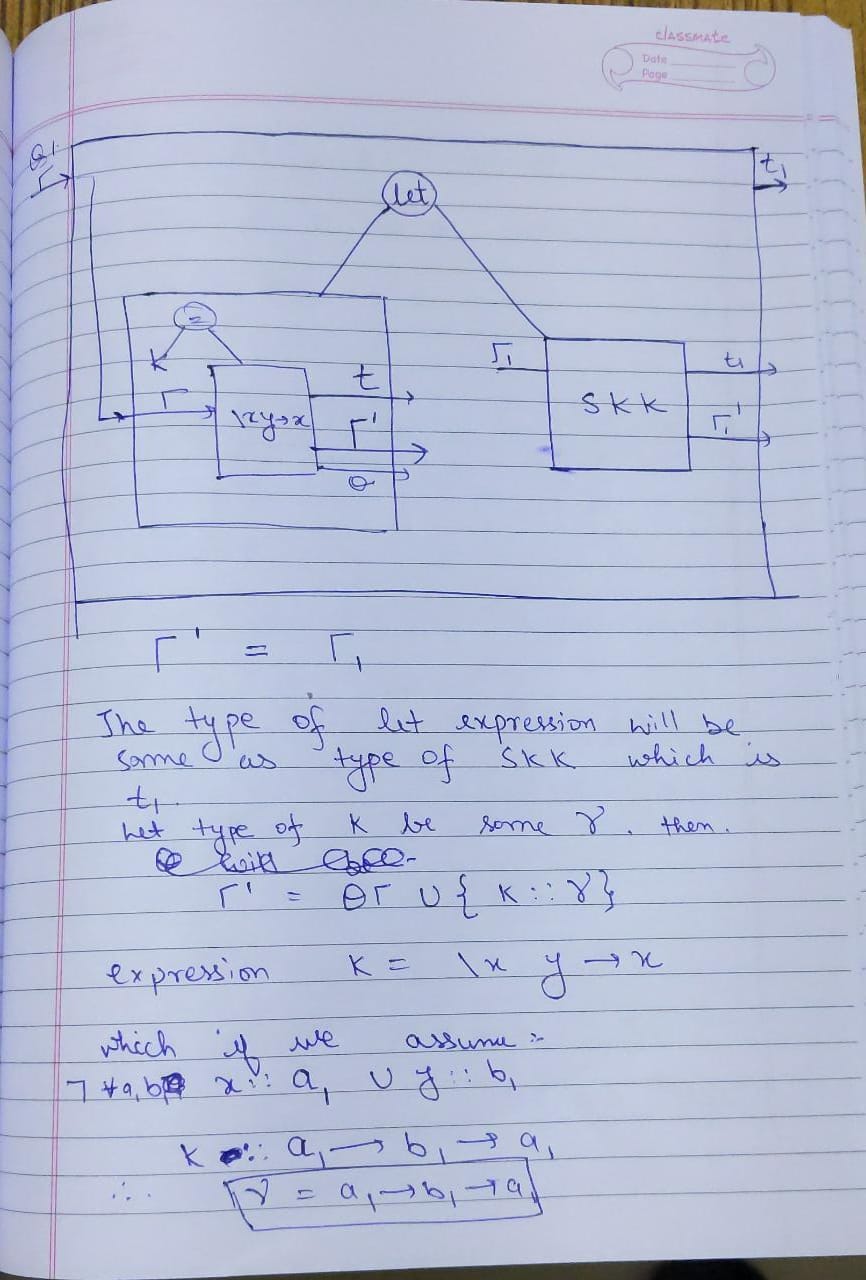 classmate
Date
Page
Q1.
Γ
t₁
let
=
K
Γ
\xy→x
t
Γ'
θ
Γ₁
SKK
t₁
Γ₁'
Γ' = Γ₁
The type of let expression will be
same as type of SKK which is
t₁.
Let type of K be some γ. then.
Γ' = θΓ ∪ { K :: γ}
expression K = \x y → x
which if we assume :-
∀a, b x :: a₁ ∪ y :: b₁
K :: a₁ → b₁ → a₁
∴ γ = a₁ → b₁ → a₁